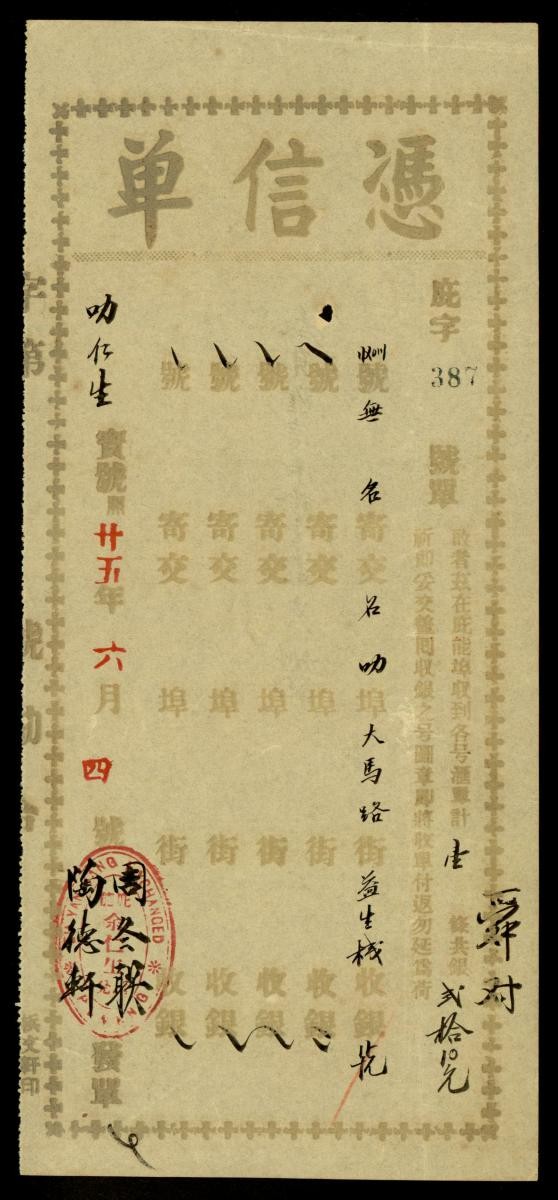 憑信单
庇字
387
號單
啟者茲在庇能埠收到各号滙單計 壹 條共銀 弍拾10元
祈即交
同收銀之号圖章即將收單付返勿延為荷
舜对
號 無名 寄交 叻 埠 大馬路 街 益生棧 收銀
號 寄交 埠 街 收銀
號 寄交 埠 街 收銀
號 寄交 埠 街 收銀
號 寄交 埠 街 收銀
叻仁生 寶號 照 廿五年 六月 四號 發單
余仁生
陶德軒
字第 號
文軒印